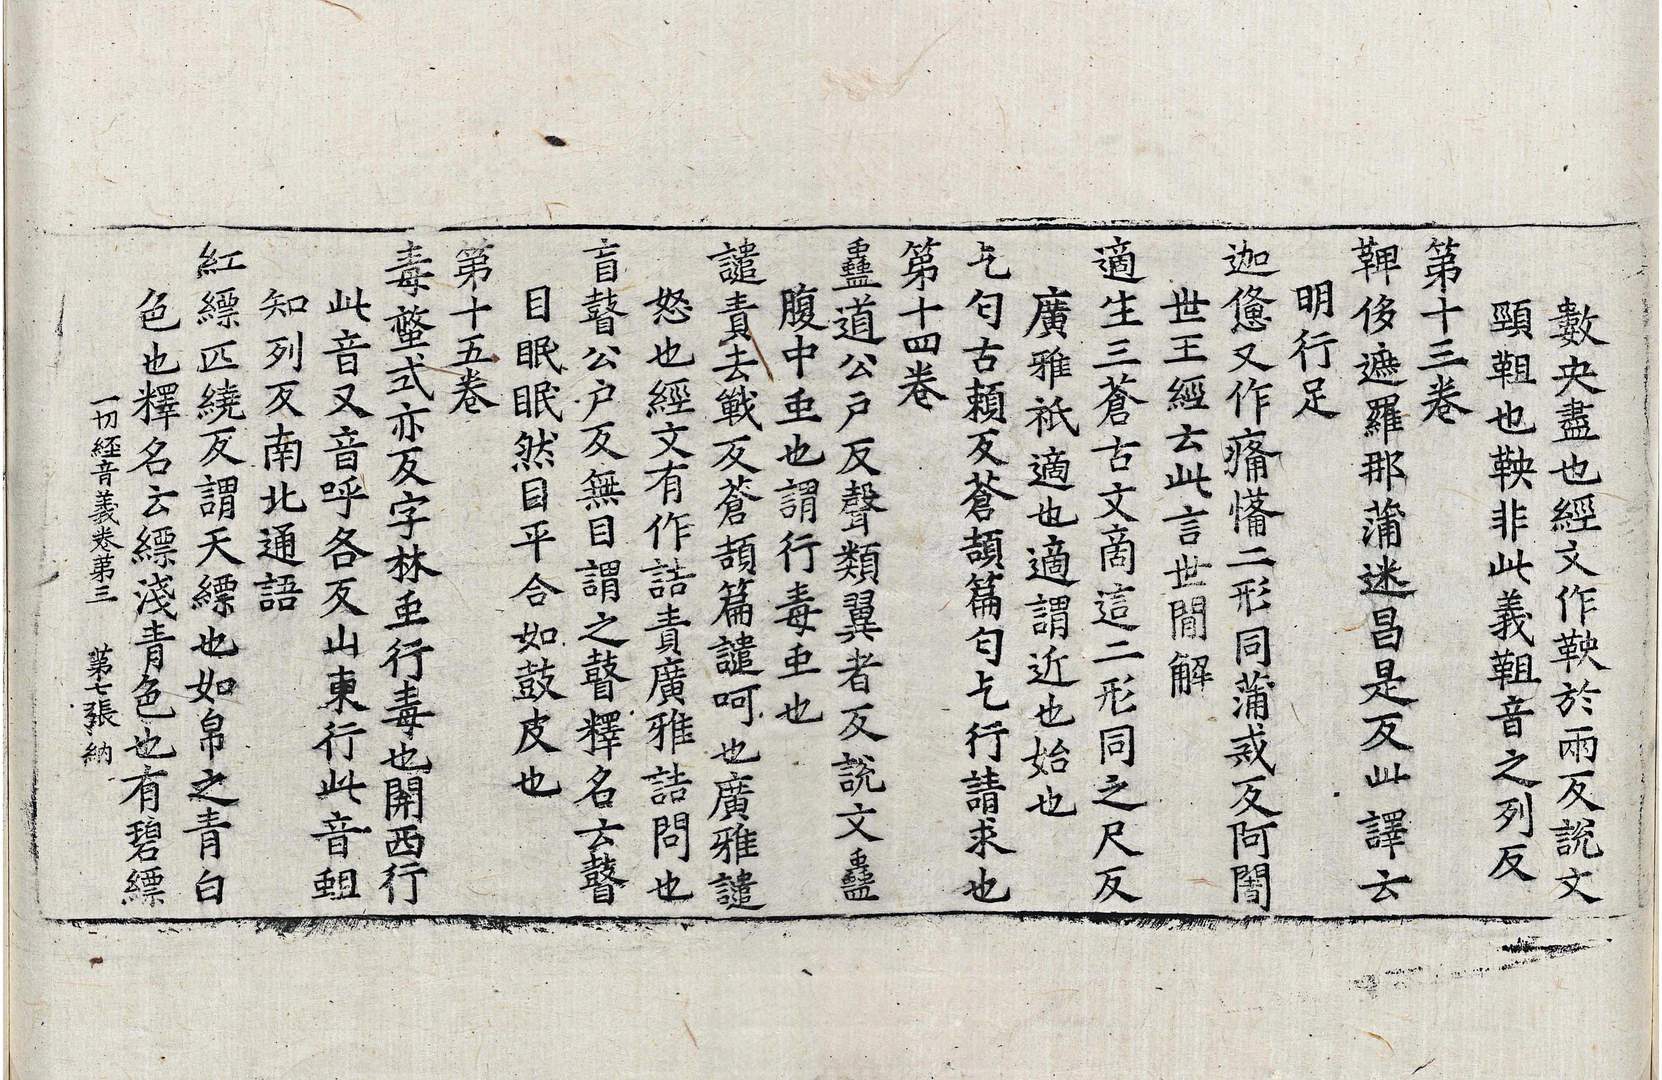 數央盡也經文作鞅於兩反說文
頸靼也鞅非此義靼音之列反
第十三卷
鞞侈遮羅那蒲迷昌是反此譯云
明行足
迦憊又作㾱㣁二形同蒲戒反阿闍
世王經云此言世閒解
適生三蒼古文啇這二形同之尺反
廣雅祇適也適謂近也始也
乞匃古賴反蒼頡篇匃乞行請求也
第十四卷
蠱道公戶反聲類翼者反說文蠱
腹中䖝也謂行毒䖝也
譴責去戰反蒼頡篇譴呵也廣雅譴
怒也經文有作詰責廣雅詰問也
盲瞽公戶反無目謂之瞽釋名云瞽
目眠眠然目平合如鼓皮也
第十五卷
毒螫式亦反字林䖝行毒也開西行
此音又音呼各反山東行此音蛆
知列反南北通語
紅縹匹繞反謂天縹也如帛之青白
色也釋名云縹淺青色也有碧縹
一切經音義卷第三　第七張　納